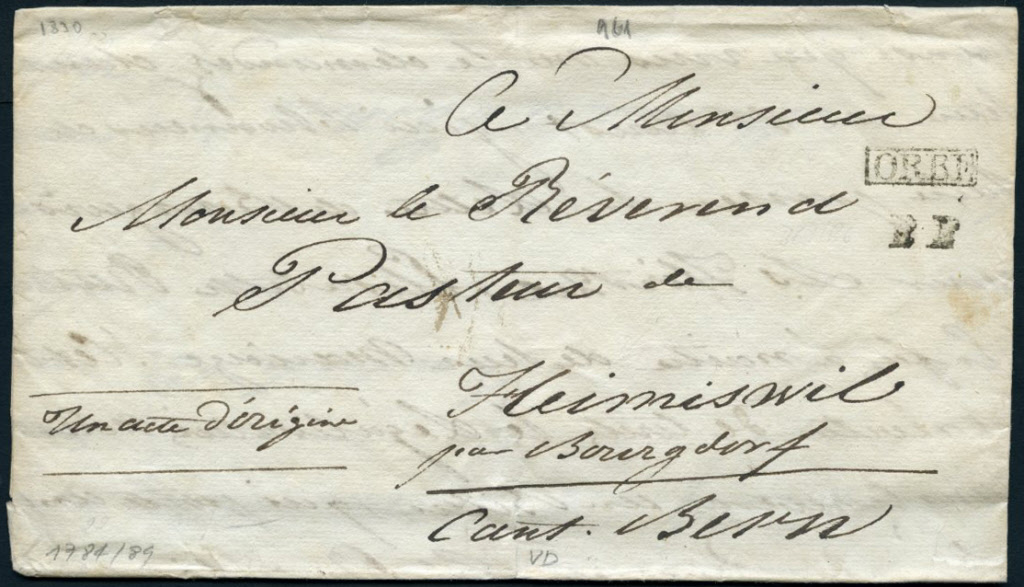 1830
961
A Monsieur
ORBE
Monsieur le Révérend
P.P.
Pasteur de
Heimiswil
Un acte d'origine
par Bourgdorf
Cant. Bern
1784/89
VD